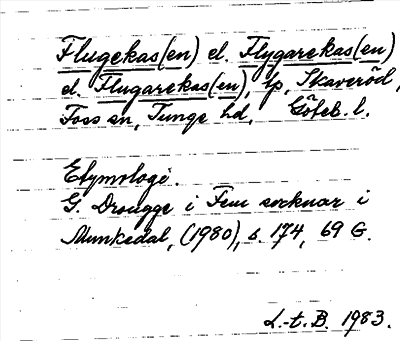 Flugekas(en) el. Flygarekas(en)
el. Flugarekas(en), tp, Skaveröd,
Foss sn, Tunge hd, Göteb. l.
Etymologi.
G. Drougge i Fem socknar i
Munkedal, (1980), s. 174, 69 G.
L.-t. B. 1983.